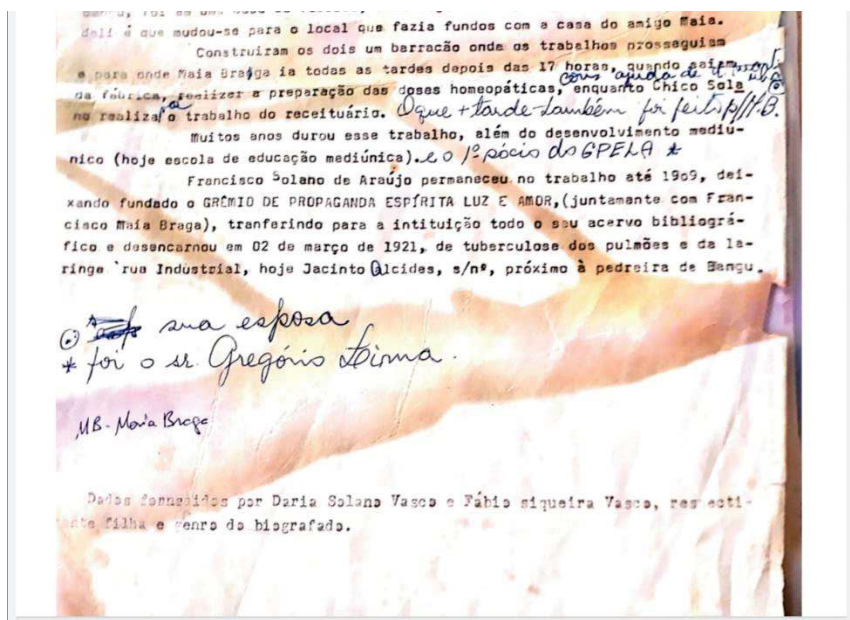 dali é que mudou-se para o local que fazia fundos com a casa do amigo Maia.
Construiram os dois um barracão onde os trabalhos prosseguiam
e para onde Maia Braga ia todas as tardes depois das 17 horas, quando saiam
com ajuda de
da fábrica, realizar a preparação das doses homeopáticas, enquanto Chico Sola
no realiza o trabalho do receituário. O que + tarde também foi feito p/ M.B.
Muitos anos durou esse trabalho, além do desenvolvimento mediu-
nico (hoje escola de educação mediúnica). e o 1º sócio do GPELA *
Francisco Solano de Araújo permaneceu no trabalho até 1909, dei-
xando fundado o GRÊMIO DE PROPAGANDA ESPÍRITA LUZ E AMOR,(juntamente com Fran-
cisco Maia Braga), tranferindo para a intituição todo o seu acervo bibliográ-
fico e desencarnou em 02 de março de 1921, de tuberculose dos pulmões e da la-
ringe rua Industrial, hoje Jacinto Alcides, s/nº, próximo à pedreira de Bangu.
sua esposa
* foi o sr. Gregório
MB - Maia Braga
Dados fornecidos por Daria Solano Vasco e Fábio siqueira Vasco, respecti-
filha e genro do biografado.